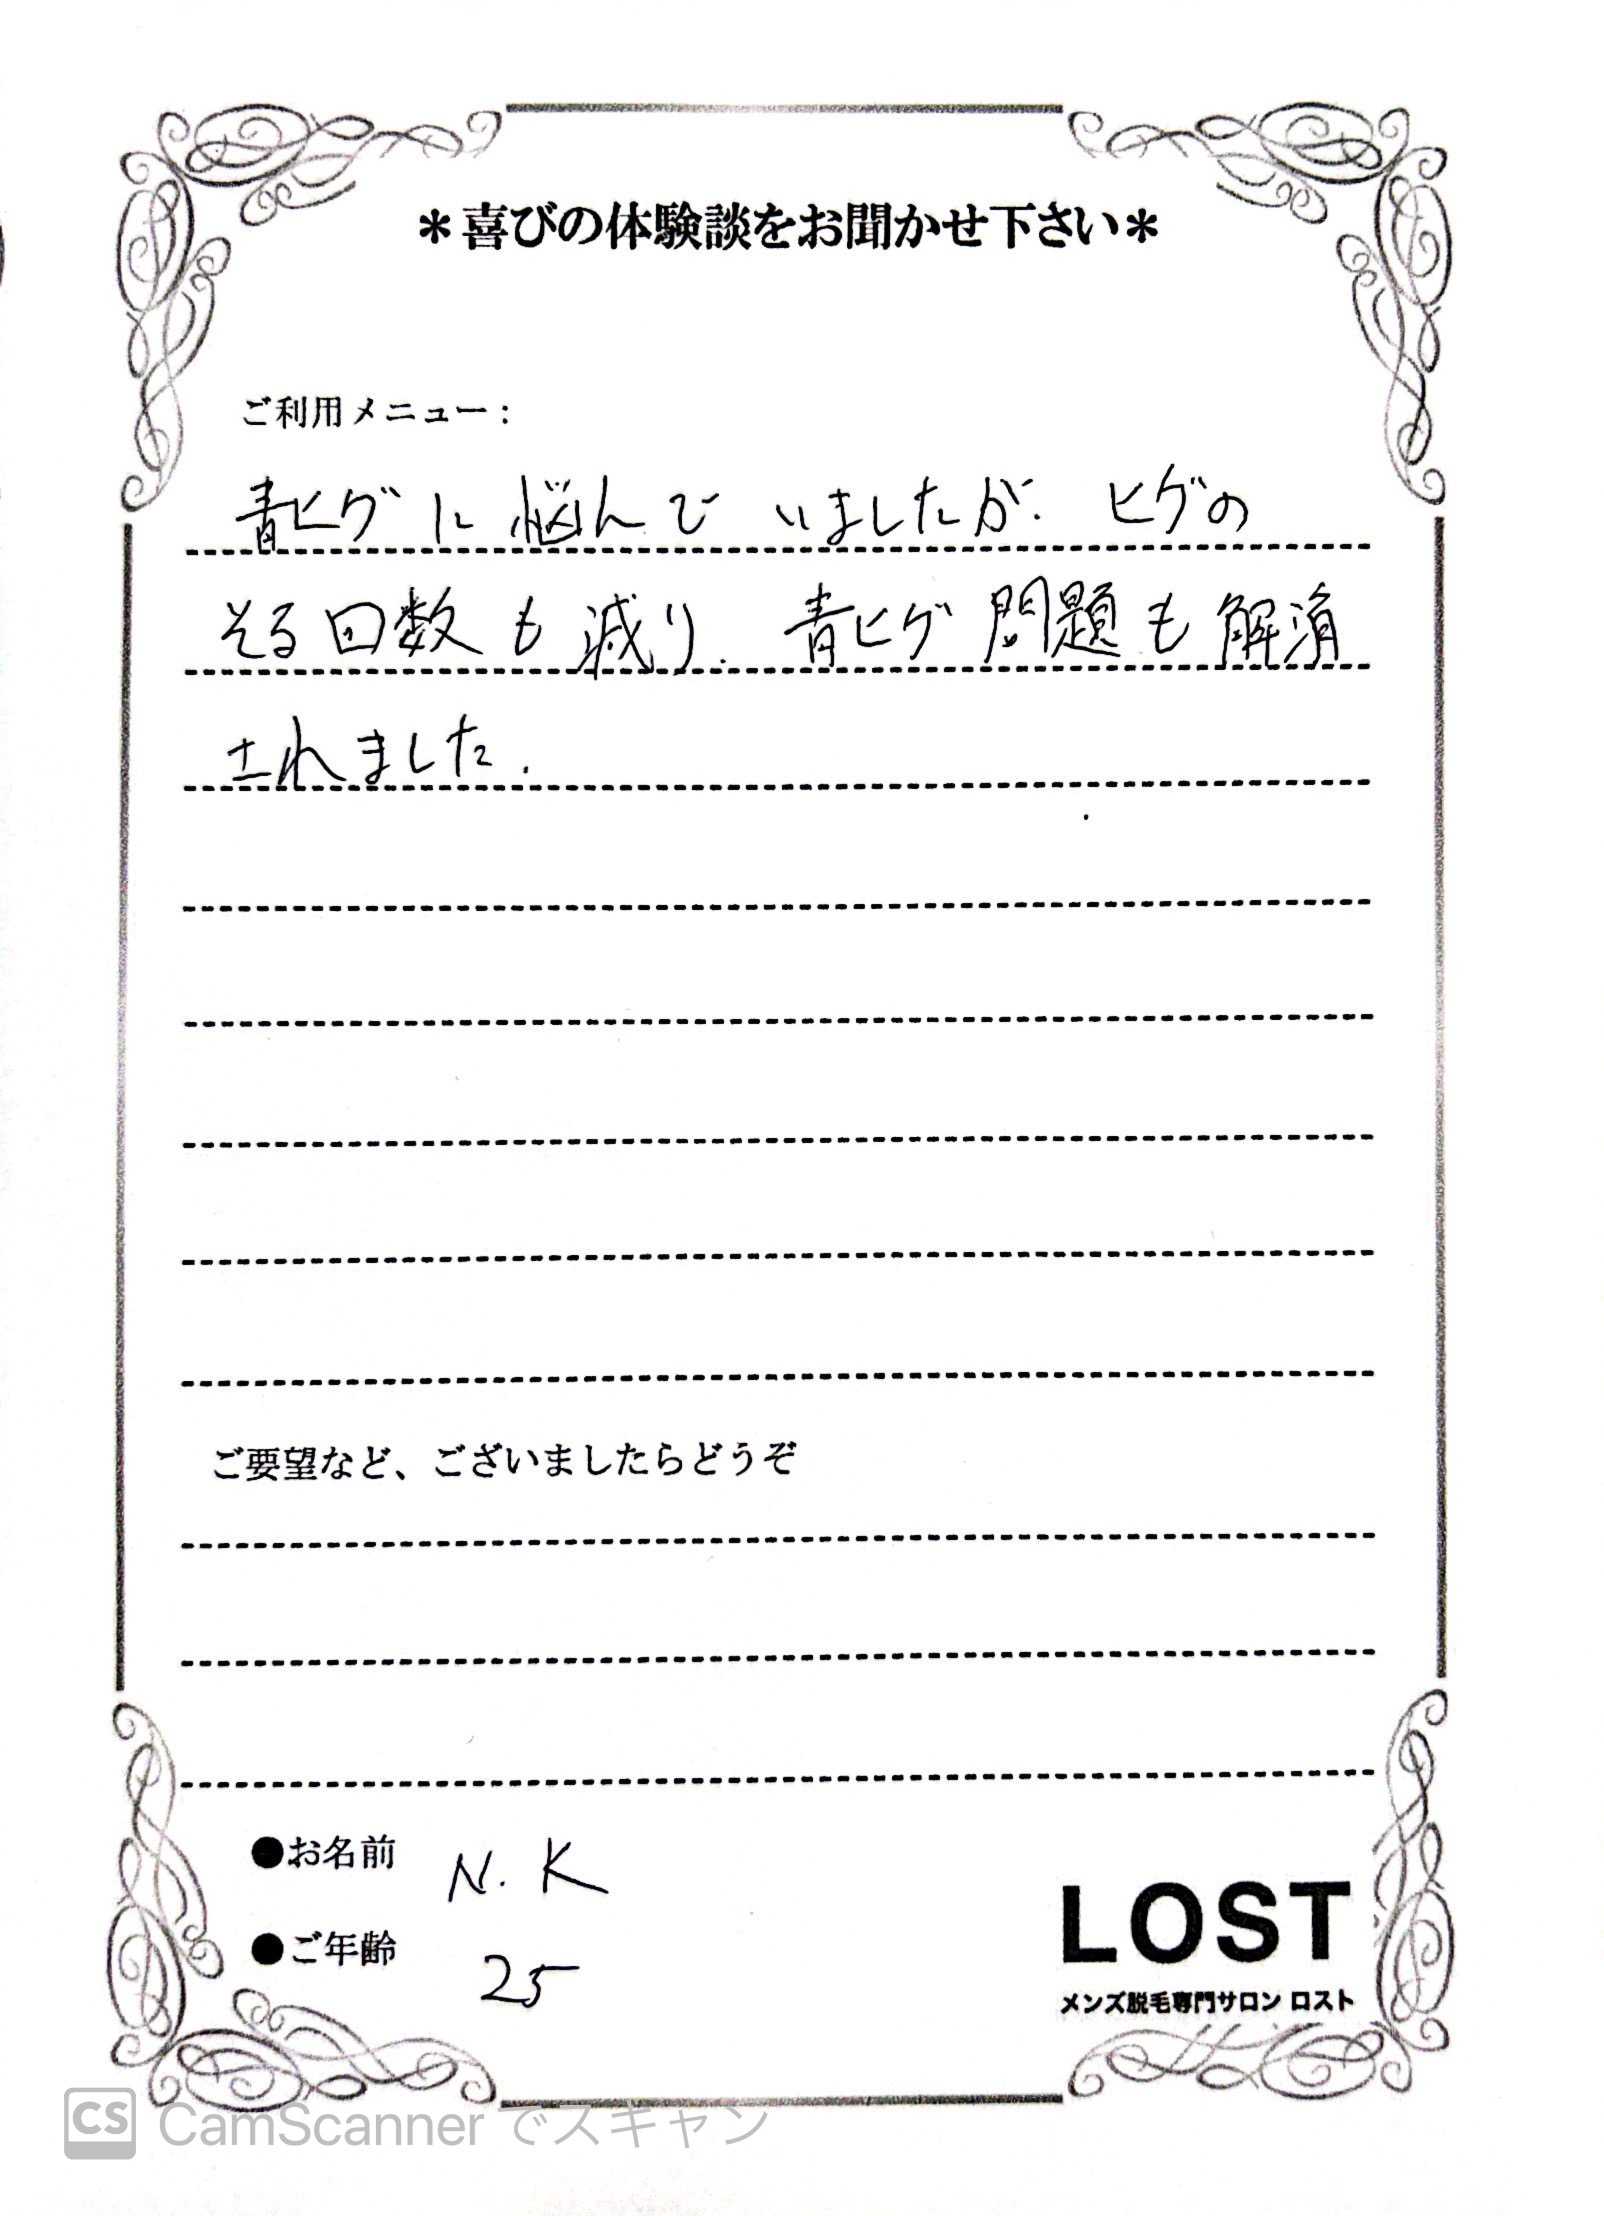 ＊喜びの体験談をお聞かせ下さい＊
ご利用メニュー：
青ヒゲに悩んでいましたが、ヒゲの
そる回数も減り、青ヒゲ問題も解消
されました.
ご要望など、ございましたらどうぞ
●お名前 N.K
●ご年齢 25
LOST
メンズ脱毛専門サロン ロスト
CS CamScanner でスキャン